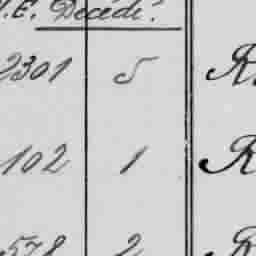 V.E. Décédé.
2301 5 R
102 1 R
578 2 R